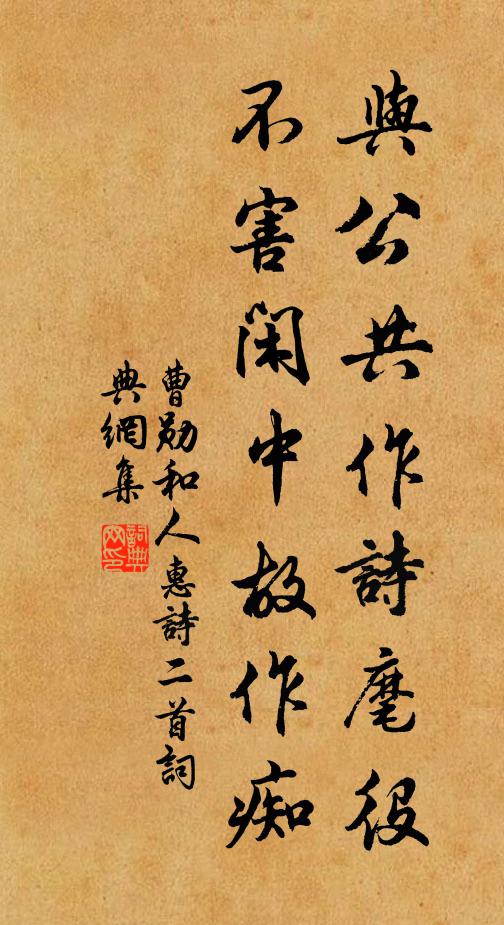 與公共作詩麾役
不害閑中故作痴
曹勛和人惠詩二首詞
典網集
詞典
网印